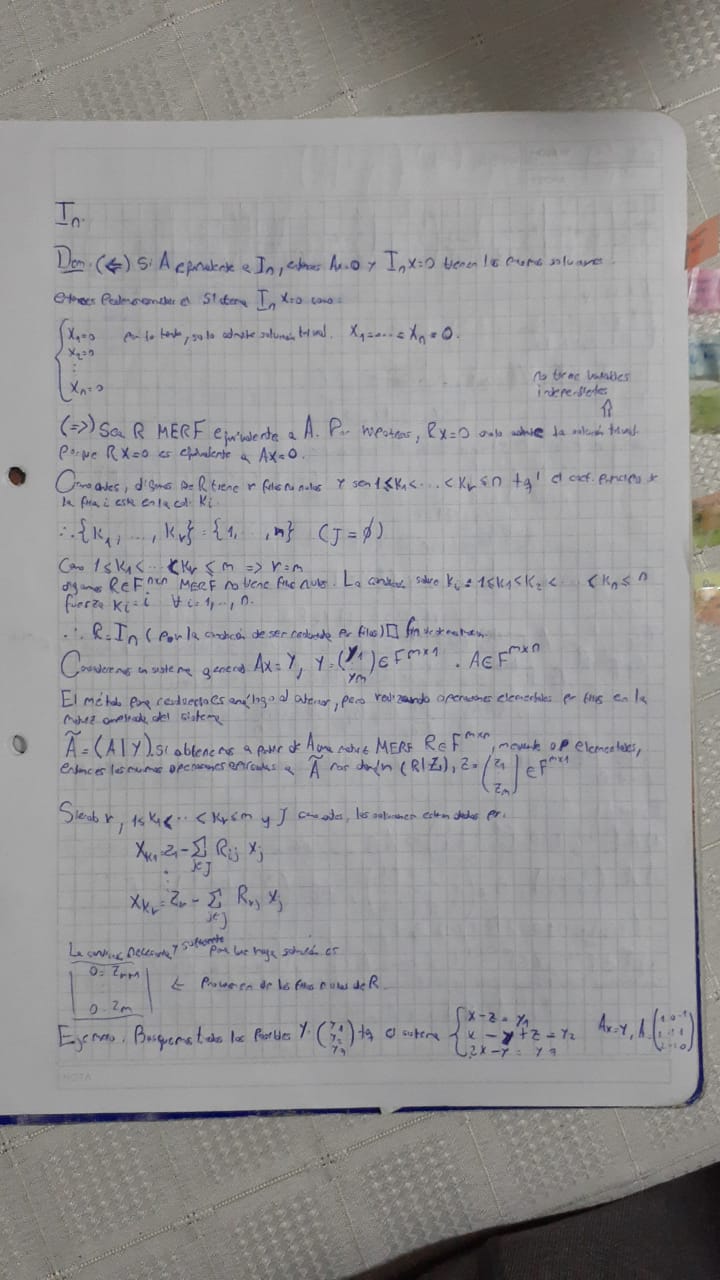 In.
Dem. (⇐) Si A equivalente a In, entonces Ax=0 y InX=0 tienen las mismas soluciones.
entonces el sistema InX=0 como:
X1=0 por lo tanto, solo admite solución trivial. X1=...=Xn=0.
X2=0
⋮
Xn=0
no tiene variables
independientes
⇑
(=>) Sea R MERF equivalente a A. Por hipótesis, RX=0 solo admite la solución trivial
porque RX=0 es equivalente a AX=0.
Como antes, digamos que R tiene r filas no nulas y sean 1≤K1<...<Kr≤n tq' el coef. principal de
la fila i este en la col. Ki.
∴{K1,...,Kr}={1,..,n} (J=∅)
Como 1≤K1<...<Kr≤m => r=m
digamos R∈F^nxn MERF no tiene filas nulas. La condición sobre Ki: 1≤K1<K2<...<Kn≤n
fuerza Ki=i ∀i=1,..,n.
∴ R=In (por la condición de ser reducida por filas)□ fin de demostración.
Consideremos un sistema general AX=Y, Y=(y1 ⋮ ym)∈F^mx1. A∈F^mxn
El método para resolverlo es análogo al anterior, pero realizando operaciones elementales por filas en la
matriz ampliada del sistema
Ã=(A|Y). Si obtenemos a partir de A una matriz MERF R∈F^mxn, mediante op elementales,
entonces las mismas operaciones aplicadas a Ã nos darán (R|Z), Z=(z1 ⋮ zm)∈F^mx1
Siendo r, 1≤K1<..<Kr≤m y J como antes, las soluciones están dadas por:
XK1=Z1-∑j∈J Rij Xj
⋮
XKr=Zr-∑j∈J Rrj Xj
La condición necesaria y suficiente para que haya solución es
0=Zr+1
⋮ ← Provienen de las filas nulas de R.
0=Zm
Ejemplo. Busquemos todos los posibles Y=(y1 y2 y3) tq el sistema {x-z=y1 Ax=Y, A=(1 0 -1
x-y+z=y2
2x-y=y3